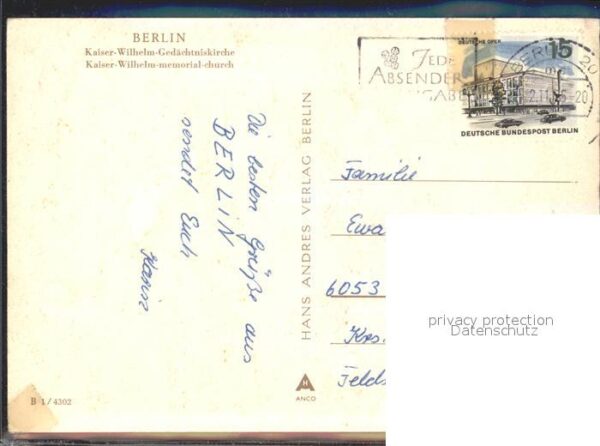 BERLIN
Kaiser-Wilhelm-Gedächtniskirche
Kaiser-Wilhelm-memorial-church
Die besten Grüße aus
BERLIN
sendet Euch
Karin
B 1/4302
HANS ANDRES VERLAG BERLIN
H
ANCO
JEDE
ABSENDER
DEUTSCHE OPER
15
BERLIN
20
DEUTSCHE BUNDESPOST BERLIN
Familie
Ewa
6053
Krs.
Felds
privacy protection
Datenschutz